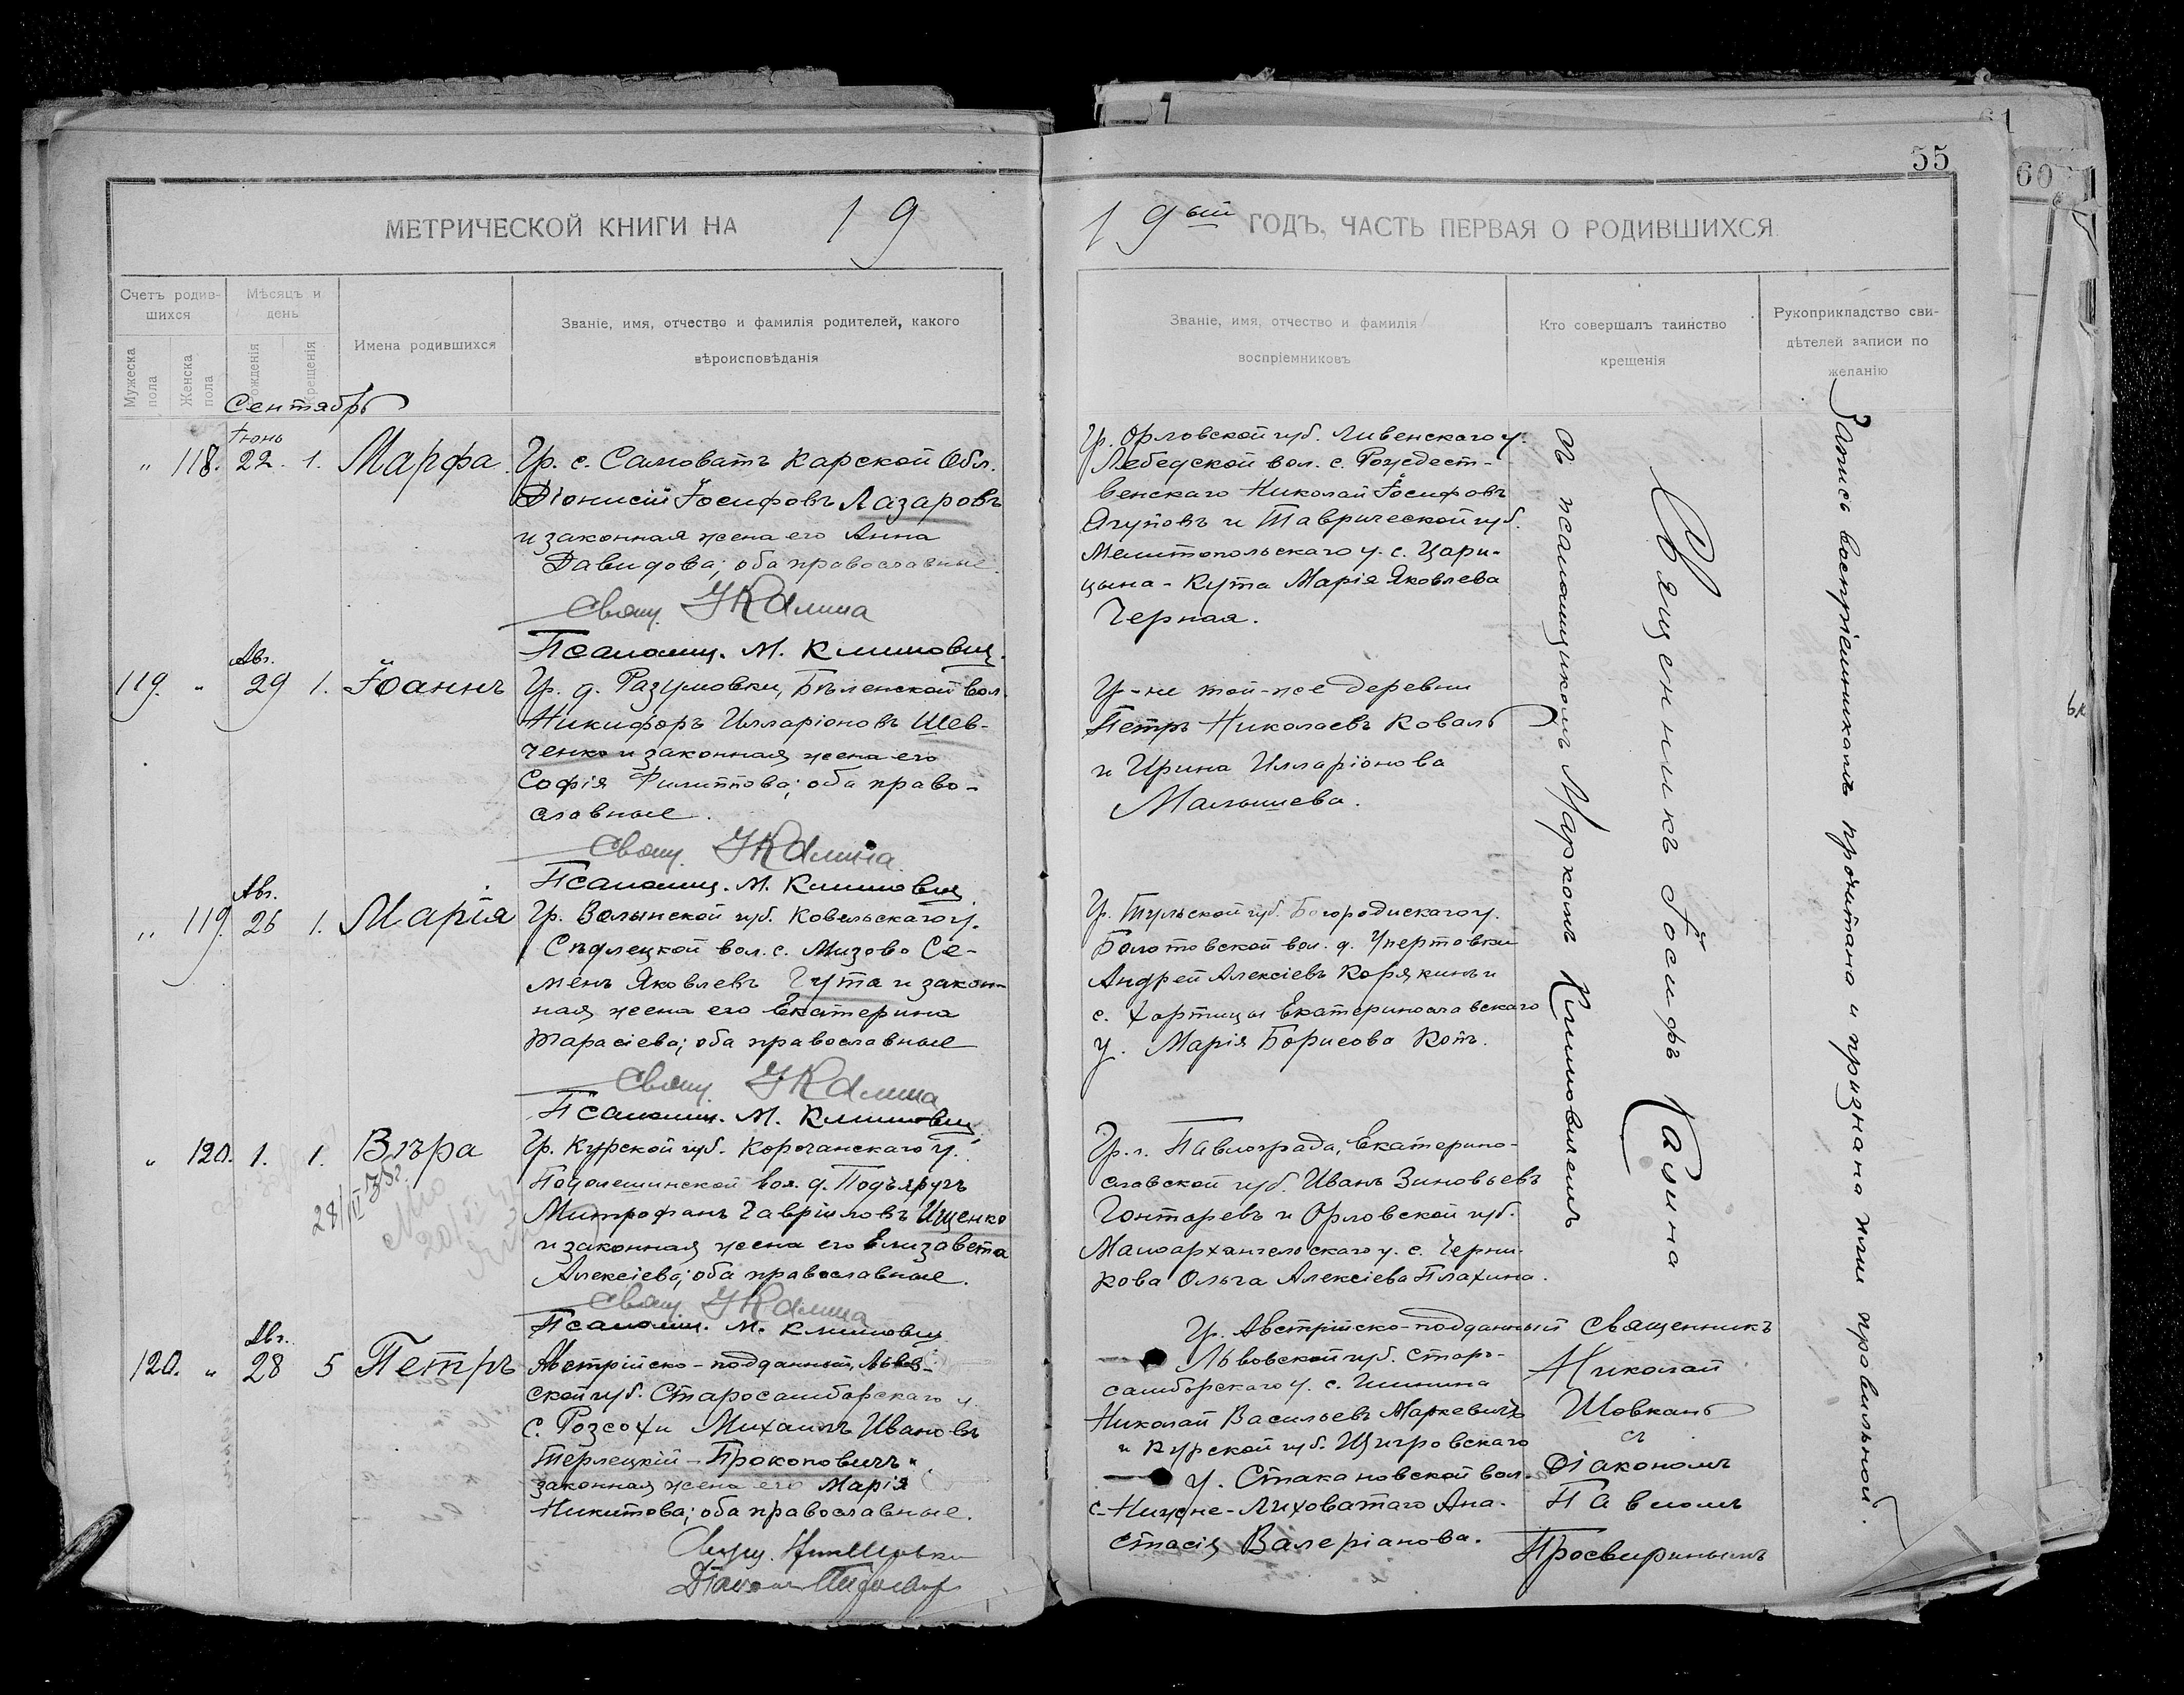 55
61
60
МЕТРИЧЕСКОЙ КНИГИ НА 19
19ый ГОДЪ, ЧАСТЬ ПЕРВАЯ О РОДИВШИХСЯ
Счетъ родив-
шихся
Мужеска
пола
Женска
пола
Мѣсяцъ и
день
Рожденія
Крещенія
Имена родившихся
Званіе, имя, отчество и фамилія родителей, какого
вѣроисповѣданія
Званіе, имя, отчество и фамилія
воспріемниковъ
Кто совершалъ таинство
крещенія
Рукоприкладство сви-
дѣтелей записи по
желанію
Сентябрь
Іюнь
" 118. 22. 1. Марфа.
Гр. с. Саловатъ Карской Обл.
Діонисій Іосифовъ Лазаровъ
и законная жена его Анна
Давидова; оба православные.
Свящ. І Калина
Псаломщ. М. Климович.
Гр. Орловской губ. Ливенскаго у.
Лебедской вол. с. Рождест-
венскаго Николай Іосифовъ
Ягуповъ и Таврической губ.
Мелитопольскаго у. с. Цари-
цына-Кута Марія Яковлева
Черная.
Авг.
119. " 29 1. Іоаннъ
Гр. д. Разумовки, Бѣленской вол.
Никифоръ Илларіоновъ Шев-
ченко и законная жена его
Софія Филиппова; оба право-
славные.
Свящ. І Калина
Псаломщ. М. Климович
Гр-не той-же деревни
Петръ Николаевъ Коваль
и Ирина Илларіонова
Малышева.
Авг.
" 119. 26 1. Марія
Гр. Волынской губ. Ковельскаго у.
Сѣдлецкой вол. с. Мизово Се-
менъ Яковлевъ Гута и закон-
ная жена его Екатерина
Тарасіева; оба православные
Свящ. І Калина
Псаломщ. М. Климович
Гр. Тульской губ. Богородискаго у.
Болотовской вол. д. Упертовки
Андрей Алексіевъ Корякинъ и
с. Хортицы Екатеринославскаго
у. Марія Борисова Котъ.
" 120. 1. 1. Вѣра
Гр. Курской губ. Корочанскаго у.
Подолешинской вол. д. Подъяругъ
Митрофанъ Гавріиловъ Ищенко
и законная жена его Елизавета
Алексіева; оба православные.
Свящ. І Калина
Псаломщ. М. Климович
Гр. г. Павлограда, Екатерино-
славской губ. Иванъ Зиновьевъ
Гонторевъ и Орловской губ.
Малоархангельскаго у. с. Черни-
кова Ольга Алексіева Плахина.
Авг.
120. " 28 5 Петръ
Австрійско-подданный, Львов-
ской губ. Старосамборскаго у.
с. Розсохи Михаилъ Ивановъ
Терлецкій-Прокоповичъ и
законная жена его Марія
Никитова; оба православные.
Гр. Австрійско-подданный
Львовской губ. Старо-
самборскаго у. с.
Николай Васильевъ Маркевичъ
и Курской губ. Щигровскаго
у. Стакановской вол.
с. Нижне-Лиховатаго Ана-
стасія Валеріанова.
Священникъ Іосифъ Калина
съ псаломщикомъ Маркомъ Климовичемъ
Священникъ
Николай
Шовкань
съ
Діакономъ
Павломъ
Просвирнымъ
Запись воспріемникамъ прочитана и признана ими правильной.